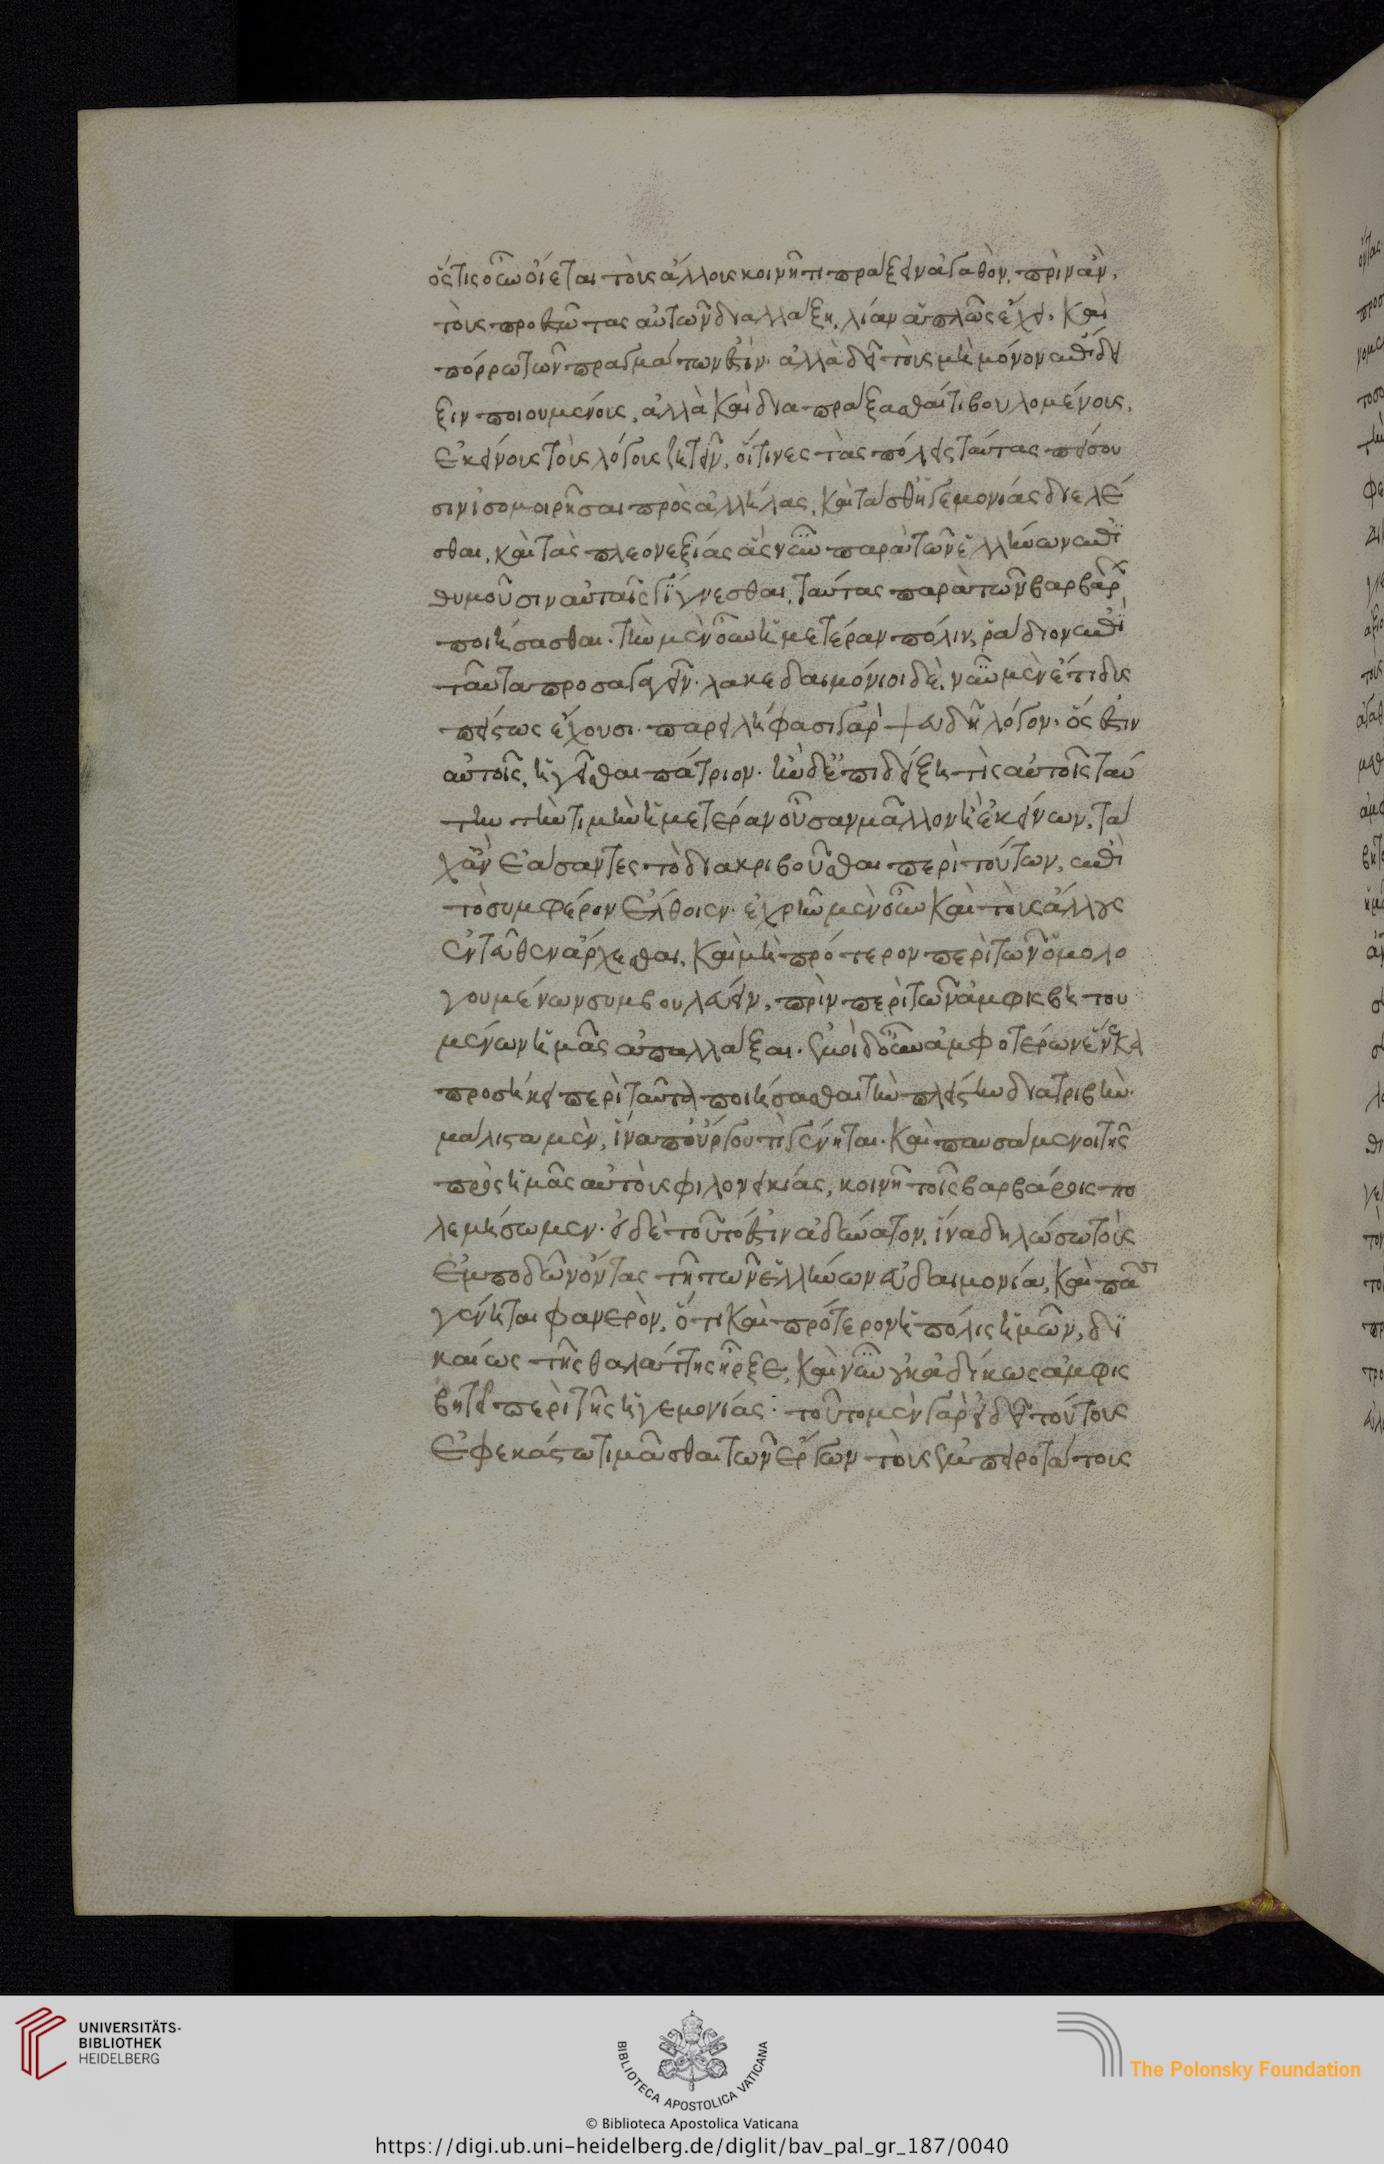 ὅστις οὖν οἴεται τοὺς ἄλλους κοινῇ τι πράξειν ἀγαθὸν, πρὶν ἂν,
τοὺς προεστῶτας αὐτῶν διαλλάξῃ, λίαν ἁπλῶς ἔχει, καὶ
πόρρω τῶν πραγμάτων ἐστίν· ἀλλὰ δεῖ τοὺς μὴ μόνον ἐπίδει
ξιν ποιουμένους, ἀλλὰ καὶ διαπράξασθαί τι βουλομένους,
ἐκείνους τοὺς λόγους ζητεῖν, οἵτινες τὰς πόλεις ταύτας πείσου
σιν ἰσομοιρῆσαι πρὸς ἀλλήλας, καὶ τάς θ' ἡγεμονίας διελέ
σθαι, καὶ τὰς πλεονεξίας ἃς νῦν παρὰ τῶν ἑλλήνων ἐπι
θυμοῦσιν αὐταῖς γίγνεσθαι, ταύτας παρὰ τῶν βαρβάρων
ποιήσασθαι· τὴν μὲν οὖν ἡμετέραν πόλιν, ῥάδιον ἐπὶ
ταῦτα προσαγαγεῖν· λακεδαιμόνιοι δὲ, νῦν μὲν ἔτι δυς
πείστως ἔχουσι· παρειλήφασι γὰρ ψευδῆ λόγον· ὡς ἔστιν
αὐτοῖς, ἡγεῖσθαι πάτριον· ἢν δ' ἐπιδείξῃ τὶς αὐτοῖς ταύ
την τὴν τιμὴν ἡμετέραν οὖσαν μᾶλλον ἢ ἐκείνων, τά
χ' ἂν ἐάσαντες τὸ διακριβοῦσθαι περὶ τούτων, ἐπὶ
τὸ συμφέρον ἔλθοιεν· ἐχρῆν μὲν οὖν καὶ τοὺς ἄλλους
ἐντεῦθεν ἄρχεσθαι, καὶ μὴ πρότερον περὶ τῶν ὁμολο
γουμένων συμβουλεύειν, πρὶν περὶ τῶν ἀμφισβητου
μένων ἡμᾶς ἀπαλλάξαι· ἐμοὶ δ' οὖν ἀμφοτέρων ἕνεκα
προσήκει περὶ ταῦτα ποιήσασθαι τὴν πλείστην διατριβὴν·
μάλιστα μὲν, ἵνα προὔργου τὶ γένηται· καὶ παυσάμενοι τῆς
πρὸς ἡμᾶς αὐτοὺς φιλονεικίας, κοινῇ τοῖς βαρβάροις πο
λεμήσωμεν· εἰ δὲ τοῦτό ἐστιν ἀδύνατον, ἵνα δηλώσω τοὺς
ἐμποδὼν ὄντας τῇ τῶν ἑλλήνων εὐδαιμονίᾳ, καὶ πᾶσι
γένηται φανερὸν, ὅτι καὶ πρότερον ἡ πόλις ἡμῶν, δι
καίως τῆς θαλάττης ἦρξε, καὶ νῦν οὐκ ἀδίκως ἀμφις
βητεῖ περὶ τῆς ἡγεμονίας· τοῦτο μὲν γὰρ εἰ δεῖ τούτους
ἐφ' ἑκάστω τιμᾶσθαι τῶν ἔργων τοὺς ἐμπειροτάτους
UNIVERSITÄTS-
BIBLIOTHEK
HEIDELBERG
BIBLIOTECA APOSTOLICA VATICANA
The Polonsky Foundation
© Biblioteca Apostolica Vaticana
https://digi.ub.uni-heidelberg.de/diglit/bav_pal_gr_187/0040